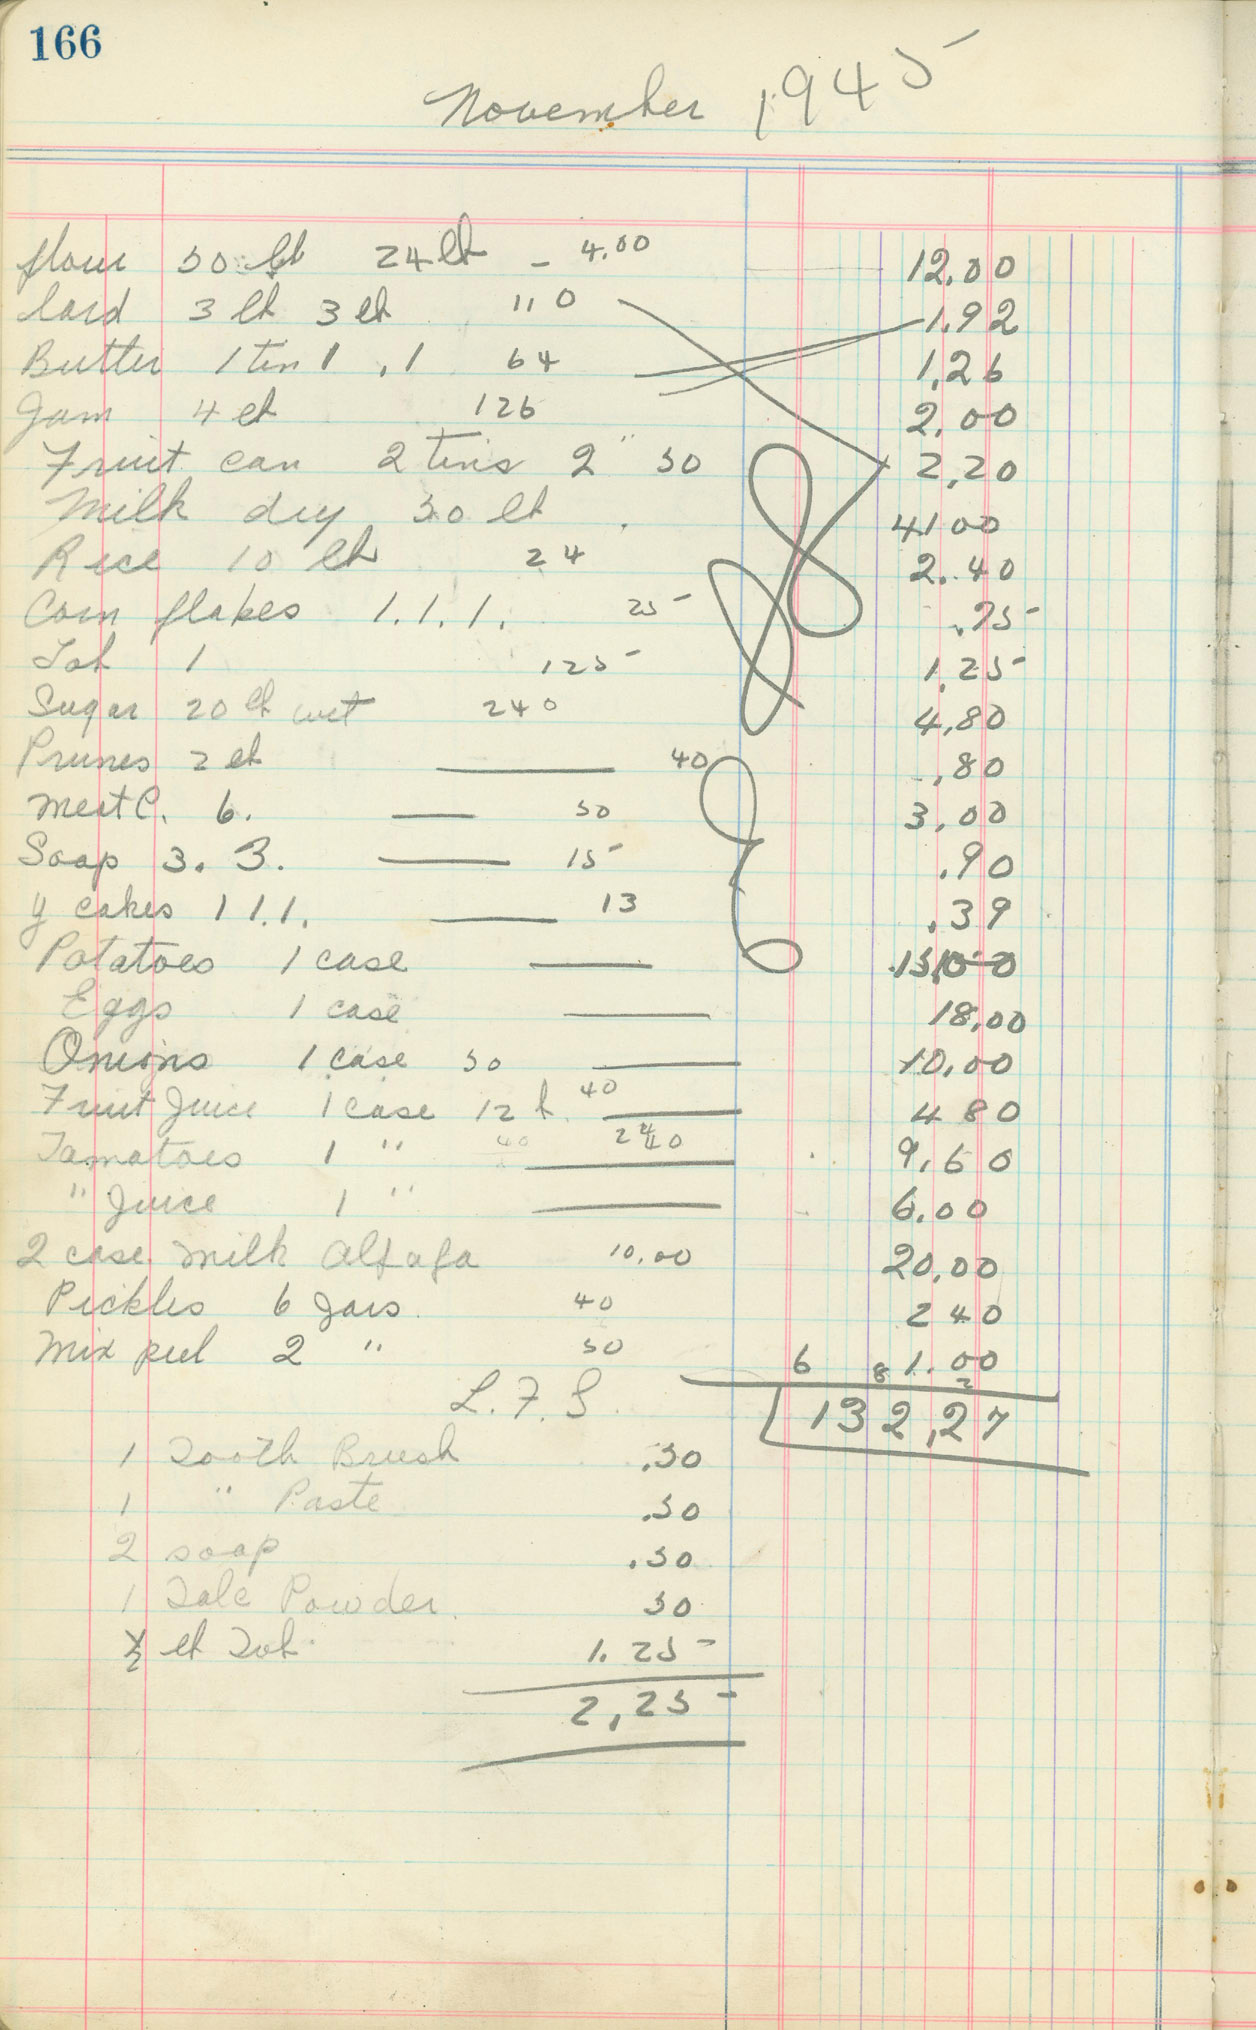 166
November 1945
flour 50 lb 24 lb - 4.00 12.00
lard 3 lb 3 lb 110 1.92
Butter 1 tin 1 . 1 64 1.26
Jam 4 lb 126 2.00
Fruit can 2 tins 2 " 50 2.20
Milk dry 50 lb 41 00
Rice 10 lb 24 2.40
Corn flakes 1.1.1. 25 .75
Tob 1 125 1.25
Sugar 20 lb wt 240 4.80
Prunes 2 lb 40 .80
Meat C. 6. 50 3.00
Soap 3. 3. 15 .90
y cakes 1 1.1. 13 .39
Potatoes 1 case 15.00
Eggs 1 case 18.00
Onions 1 case 50 10.00
Fruit Juice 1 case 12 t 40 4 80
Tamatoes 1 " 40 24 40 9.60
" Juice 1 " 6.00
2 case milk Alfafa 10.00 20.00
Pickles 6 Jars. 40 2 40
Mix peel 2 " 50 1.00
6 8 2
L. F. S. 132.27
1 Tooth Brush .50
1 " Paste .50
2 soap .30
1 Talc Powder 50
½ lb Tob. 1.25
2,25